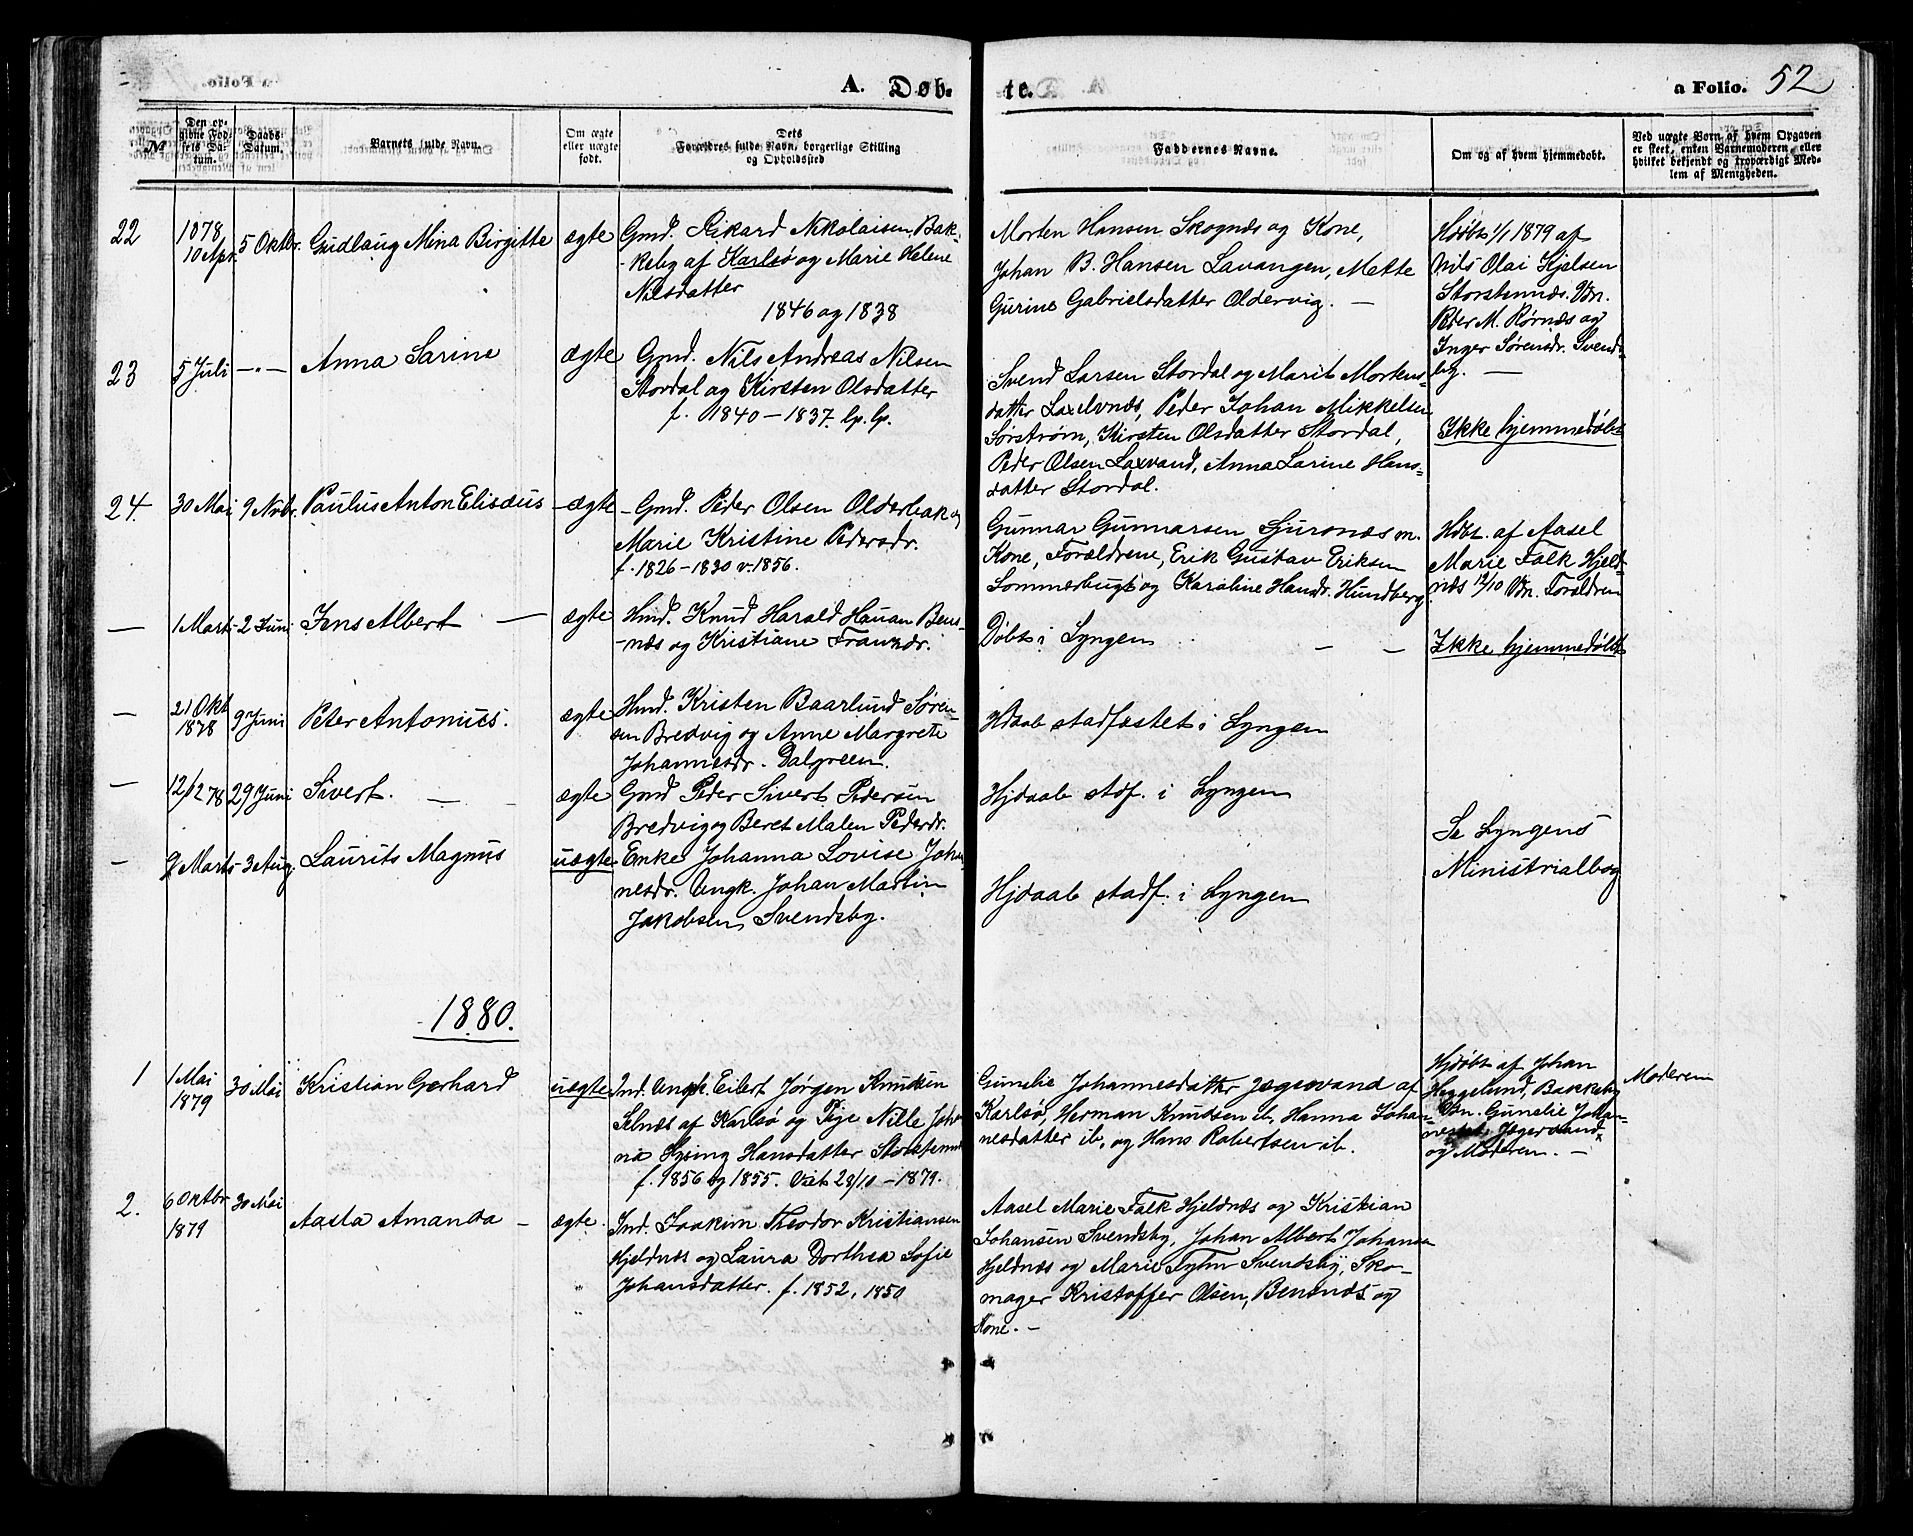 A. Døb-
te.
a Folio. 52
№
Den opgivne Fødsels Datum.
Daabs-Datum.
Barnets fulde Navn.
Om ægte eller uægte født.
Dets Forældres fulde Navn, borgerlige Stilling og Opholdssted
Faddernes Navne.
Om og af hvem hjemmedøbt.
Ved uægte Børn af hvem Opgaven er skeet, enten Barnemoderen, eller hvilket bekjendt og troværdigt Medlem af Menigheden.
22
1878
10 Apr.
5 Oktbr.
Gudlaug Mina Birgitte
ægte
Gmd. Rikard Nikolaisen Bak-
keby af Karlsø og Marie Helene
Nilsdatter
1846 og 1838
Morten Hansen Skognæs og Kone,
Johan B. Hansen Lavangen, Mette
Gurine Gabrielsdatter Oldervig. —
Hdøbt 1/1 1879 af
Nils Olai Hjelsen
Storstennæs. Vn.
Peder M. Rørnæs og
Inger Sørensdr. Svends-
by. —
23
5 Juli
—"—
Anna Sarine
ægte
Gmd. Nils Andreas Nilsen
Stordal og Kirsten Olsdatter
f. 1840 — 1837. lp. lp.
Svend Larsen Stordal og Marit Mortens-
datter Laxelvnæs, Peder Johan Mikkelsen
Sørstrøm, Kirsten Olsdatter Stordal,
Peder Olsen Laxvand, Anna Sarine Hans-
datter Stordal.
Ikke hjemmedøbt
24.
30 Mai
9 Nvbr.
Paulus Anton Elisæus
ægte
Gmd. Peder Olsen Olderbak og
Marie Kristine Pedersdr.
f. 1826 — 1830 v. 1856.
Gunnar Gunnarsen Sjursnæs m.
Kone, Forældrene, Erik Gustav Eriksen
Sommerbugt og Karoline Hansdr. Hundberg
Hdbt. af Aasel
Marie Falk Hjeld-
næs 12/10 Vn. Forældrene
—
1 Marts
2 Juni
Jens Albert —
ægte
Hmd. Knud Harald Hauan Bens-
næs og Kristiane Fransdr.
Døbt i Lyngen — —
Ikke hjemmedøbt
—
21 Okt
1878
9 Juni
Peter Antonius.
ægte
Hmd. Kristen Baarlund Søren-
sen Bredvig og Anne Margrete
Johannesdr. Dalgreen.
Hdaab stadfæstet i Lyngen
—
12/12 78
29 Juni
Sivert. —
ægte
Gmd Peder Sivert Pedersen
Bredvig og Beret Malen Pedersdr.
Hjdaab stdf. i Lyngen
Se Lyngens
Ministrialbog
—
9 Marts
3 Aug.
Laurits Magnus
uægte
Enke Johanna Lovise Johan-
nesdr. Ungk. Johan Martin
Jakobsen Svendsby.
Hjdaab stadf. i Lyngen
1880.
1
1 Mai
1879
30 Mai
Kristian Gerhard
uægte
Ind. Ungk. Eilert Jørgen Knudsen
Selnæs af Karlsø og Pige Nille Joha-
na Hansdatter Storstennæs
f. 1856 og 1855. Viet 28/10 — 1879.
Gunelie Johannesdatter Jægervand af
Karlsø, Herman Knudsen ib, Hanna Johan-
nesdatter ib, og Hans Robertsen ib.
Hjdøbt af Johan
Heggelund, Bakkeby
Vn. Gunelie Johan-
nesdat. Jægervand
og Moderen. —
Moderen
2.
6 Oktbr
1879
30 Mai
Aasta Amanda —
ægte.
Ind. Joakim Theodor Kristiansen
Hjeldnæs og Laura Dorthea Sofie
Johansdatter. f. 1852, 1850
Aasel Marie Falk Hjeldnæs og Kristian
Johansen Svendsby, Johan Albert Johansen
Hjeldnæs og Marie Svendsby, Sko-
mager Kristoffer Olsen, Bensnæs og
Kone. —